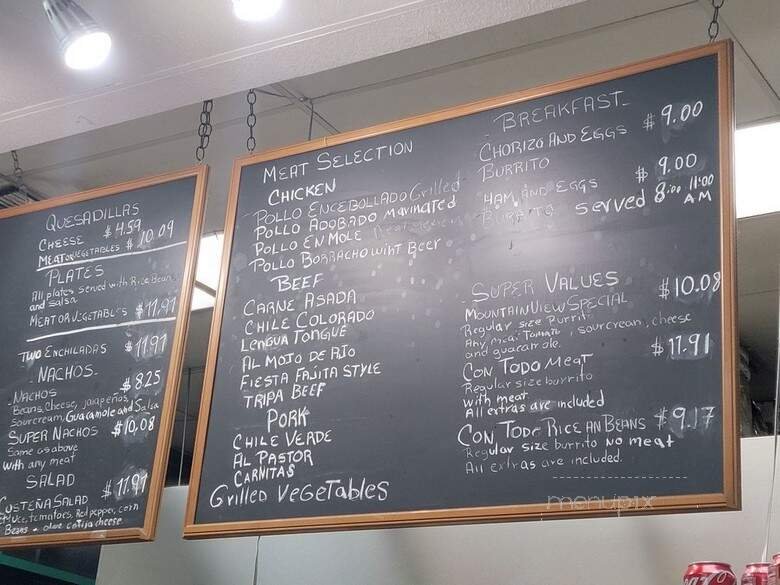 QUESADILLAS
CHEESE $4.59
MEAT OR VEGETABLES $10.09
PLATES
All plates served with Rice Beans
and salsa
MEAT OR VEGETABLES $11.91
TWO ENCHILADAS $11.91
NACHOS
NACHOS $8.25
Beans, Cheese, jalapeños
Sourcream, Guacamole and Salsa
SUPER NACHOS $10,08
Same as above
with any meat
SALAD
COSTEÑA SALAD $11.91
tomatoes, Red pepper, corn
Beans + cotija cheese
MEAT SELECTION
CHICKEN
POLLO ENCEBOLLADO Grilled
POLLO ADOBADO Marinated
POLLO EN MOLE
POLLO BORRACHO WIHT BEER
BEEF
CARNE ASADA
CHILE COLORADO
LENGUA TONGUE
AL MOJO DE RIO
FIESTA FAJITA STYLE
TRIPA BEEF
PORK
CHILE VERDE
AL PASTOR
CARNITAS
GRILLED VEGETABLES
BREAKFAST
CHORIZO AND EGGS $9.00
BURRITO
HAM AND EGGS $9.00
BURRITO served 8:00 11:00
AM
SUPER VALUES
MOUNTAIN VIEW SPECIAL $10.08
Regular size Burrit
Any meat Tomato, sourcrean, cheese
and guacarole.
CON TODO MEAT $11.91
Regular size burrito
with meat
All extras are included
CON TODO RICE AN BEANS $9.17
Regular size burrito NO meat
All extras are included.
menupix